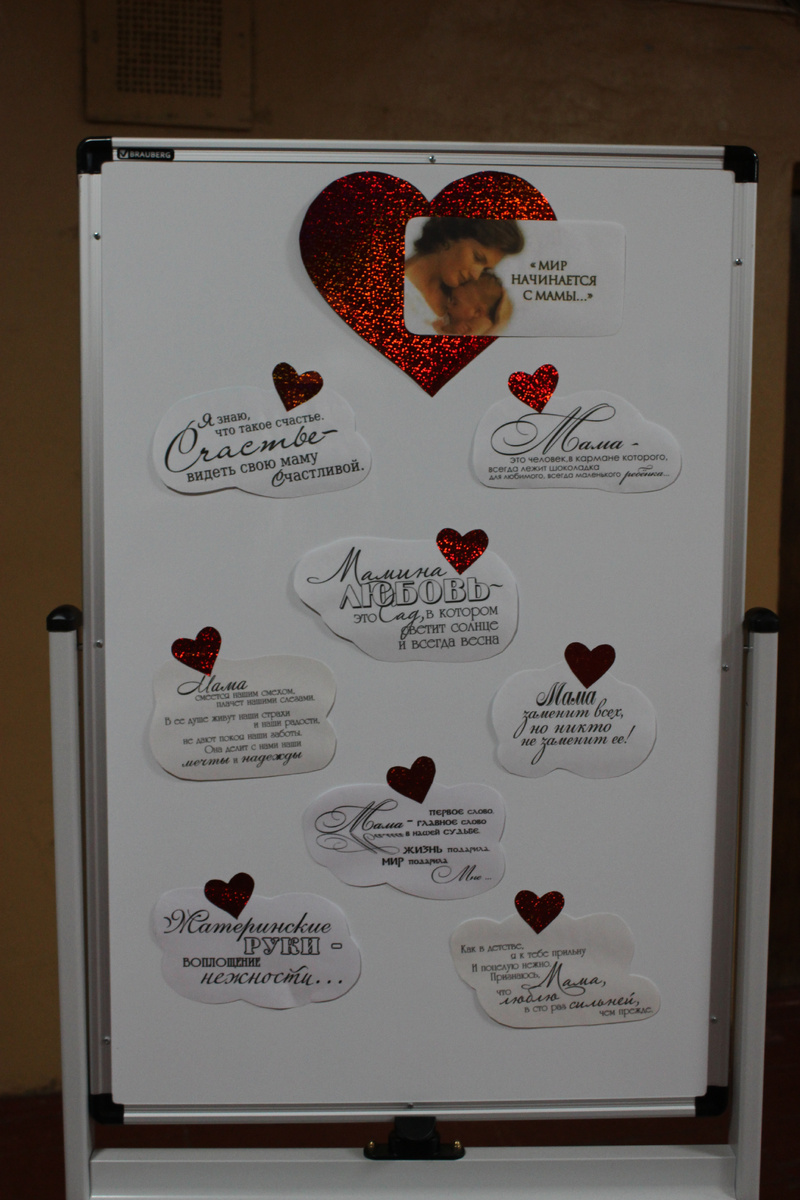 BRAUBERG
« МИР
НАЧИНАЕТСЯ
С МАМЫ...»
Я знаю,
что такое счастье.
Счастье–
видеть свою маму
счастливой.
Мама -
это человек,в кармане которого,
всегда лежит шоколадка
для любимого, всегда маленького ребёнка...
Мамина
ЛЮБОВЬ–
это Сад,в котором
светит солнце
и всегда весна
Мама
смеется нашим смехом,
плачет нашими слезами.
В ее душе живут наши страхи
и наши радости,
не дают покоя наши заботы.
Она делит с нами наши
мечты и надежды
Мама
заменит всех,
но никто
не заменит ее!
первое слово.
Мама – главное слово
в нашей судьбе.
жизнь подарила
мир подарила
Мне ...
Материнские
РУКИ -
воплощение
нежности...
Как в детстве,
я к тебе прильну
И поцелую нежно.
Признаюсь,
Мама,
что
люблю
в сто раз сильней,
чем прежде.